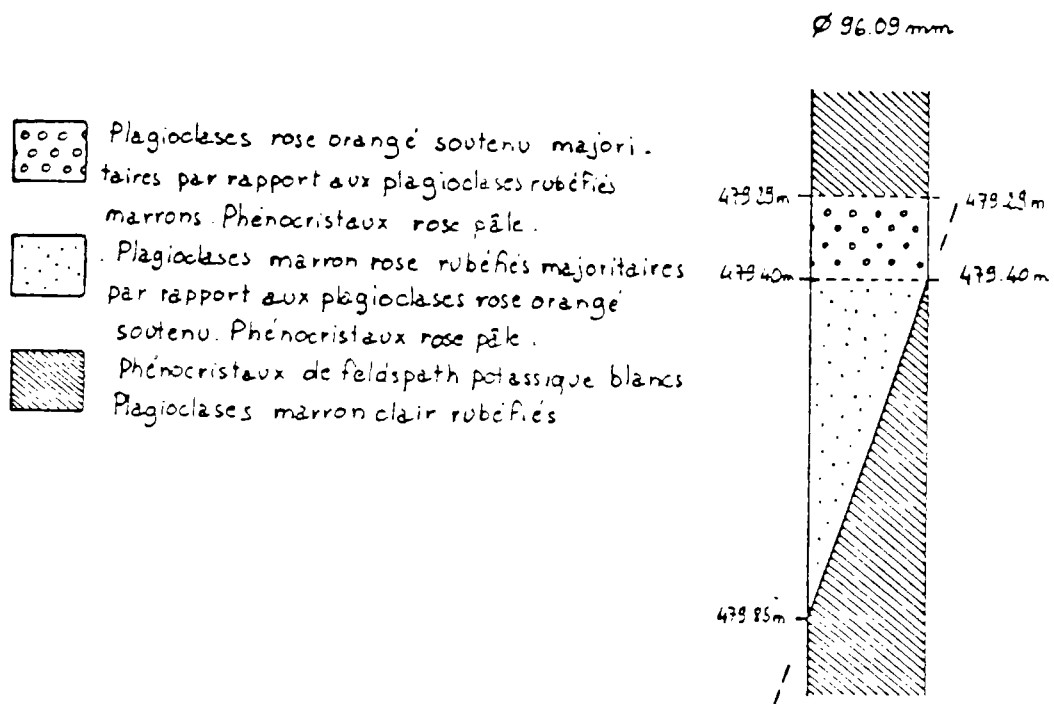 Ø 96.09 mm
Plagioclases rose orangé soutenu majori-
taires par rapport aux plagioclases rubéfiés
marrons. Phénocristaux rose pâle.
Plagioclases marron rose rubéfiés majoritaires
par rapport aux plagioclases rose orangé
soutenu. Phénocristaux rose pâle.
Phénocristaux de feldspath potassique blancs
Plagioclases marron clair rubéfiés
479.29m
479.29m
479.40m
479.40m
479.85m